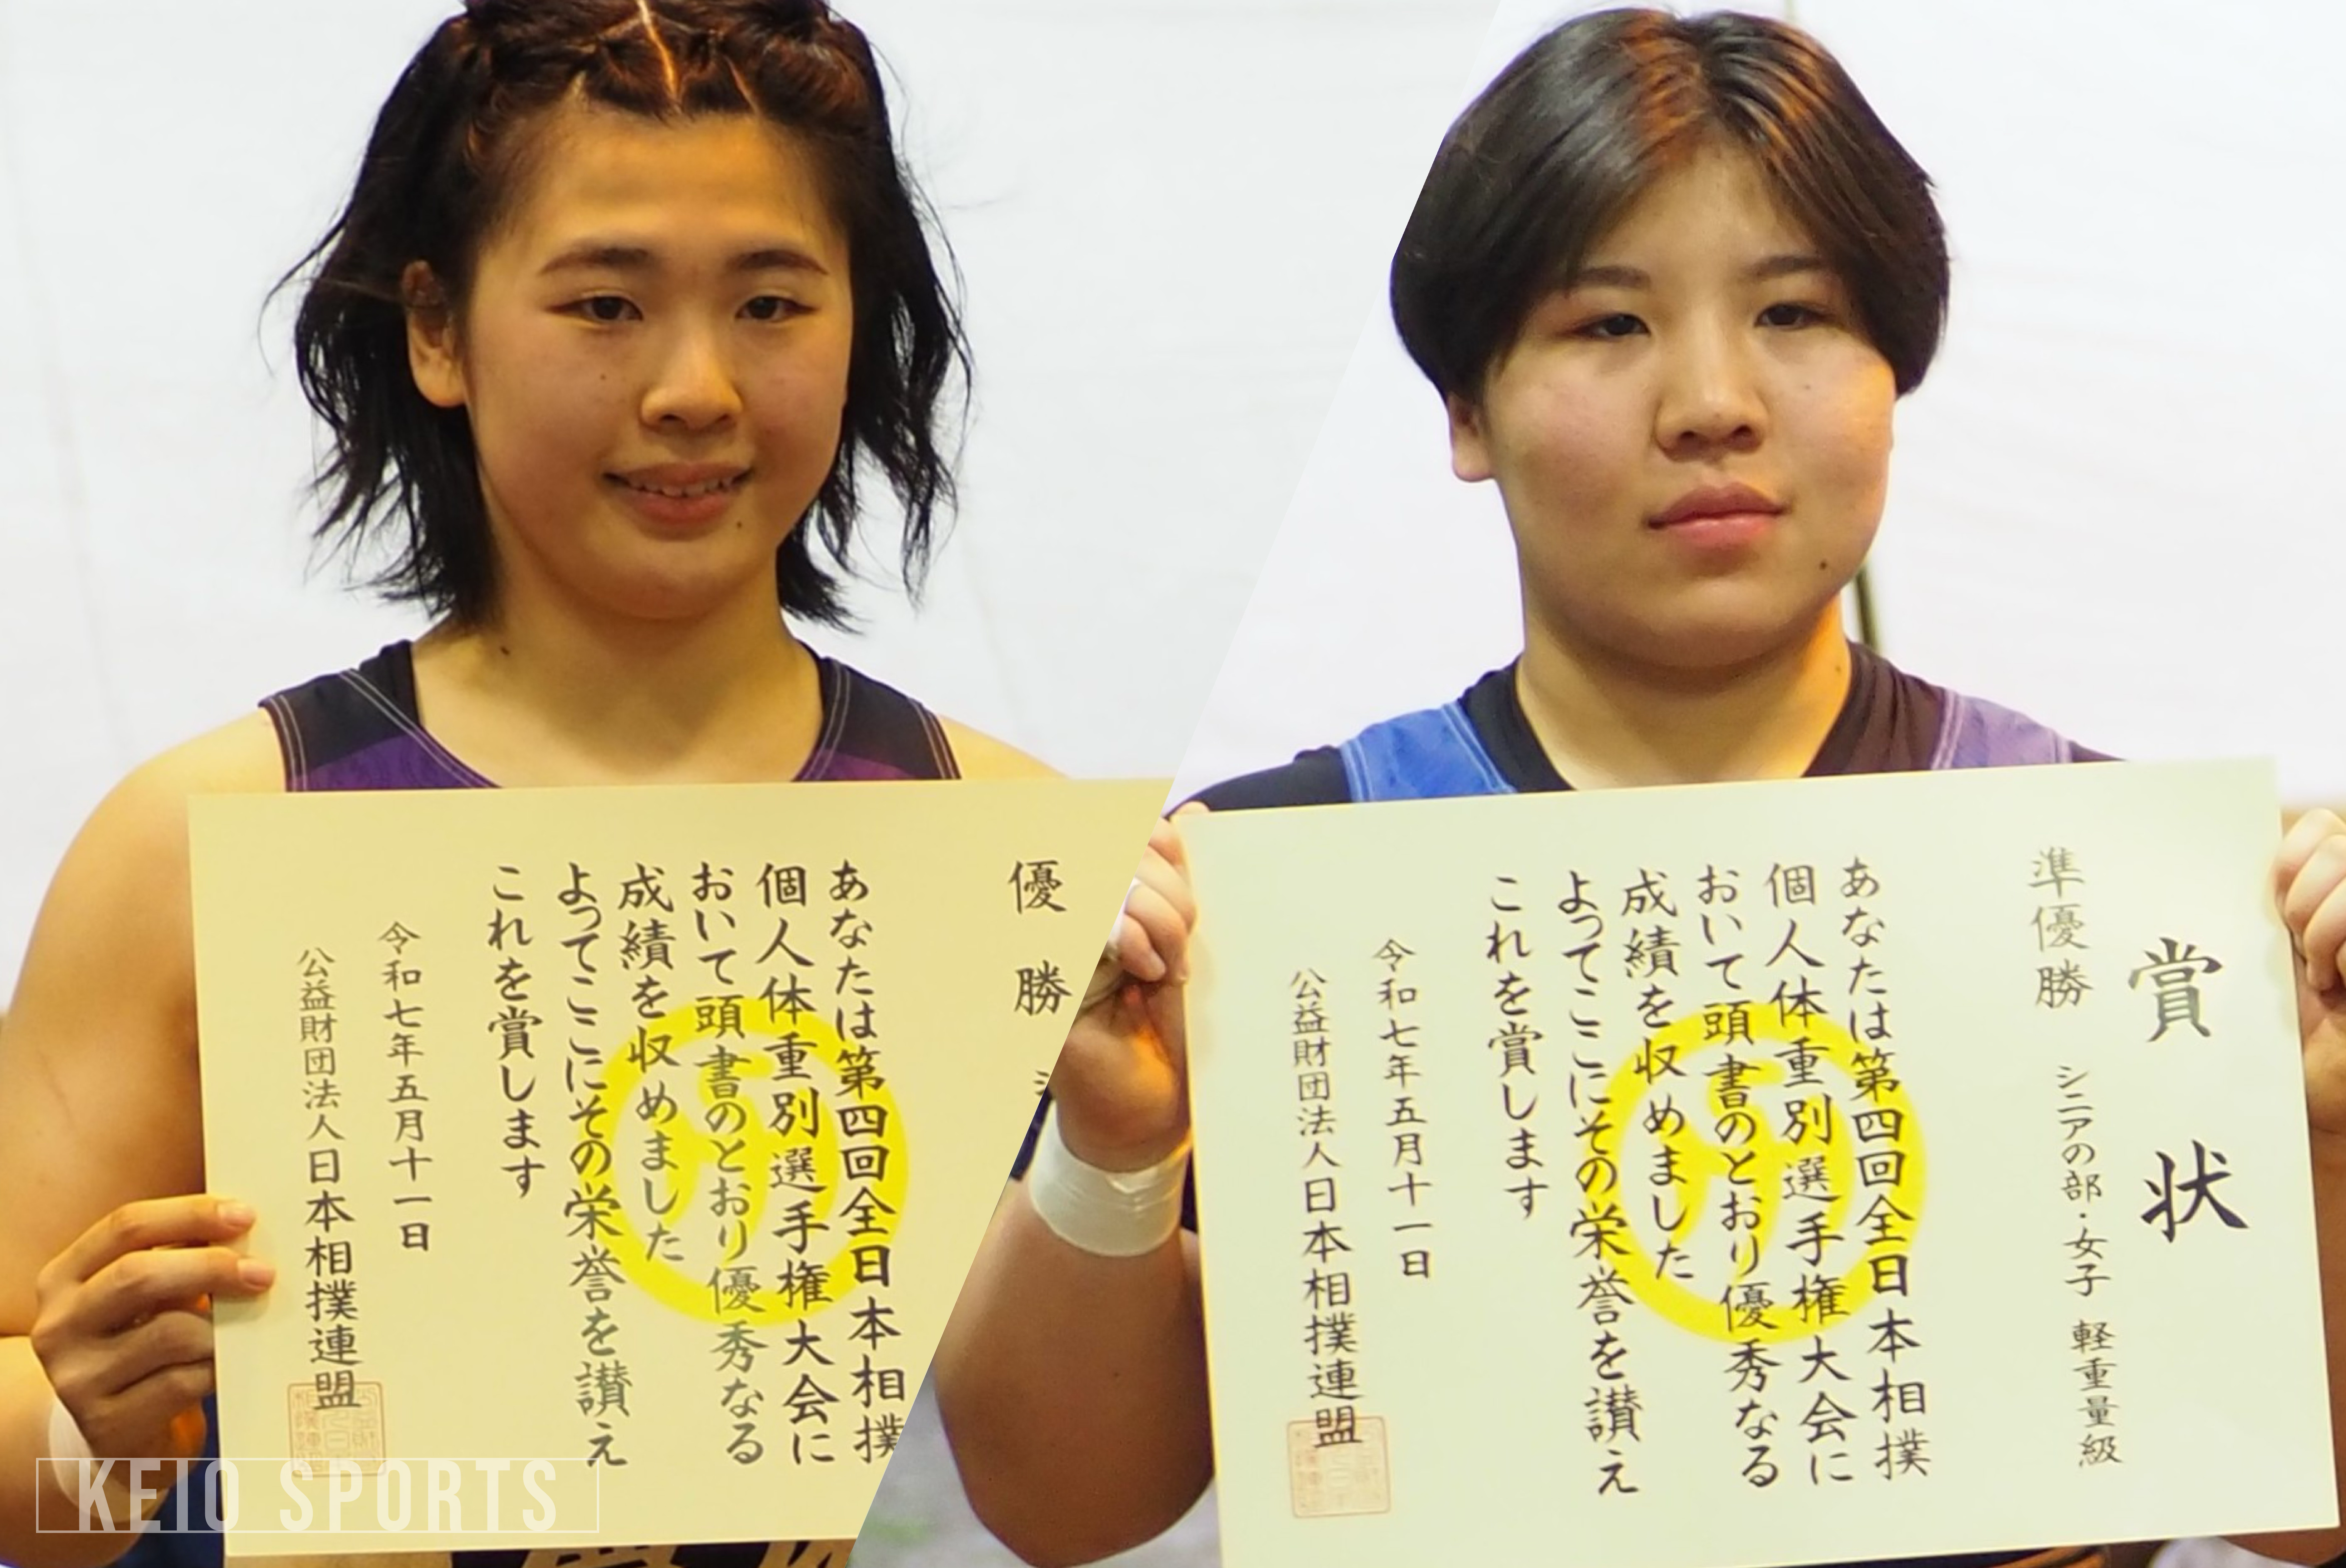 優勝
あなたは第四回全日本相撲
個人体重別選手権大会に
おいて頭書のとおり優秀なる
成績を収めました
よってここにその栄誉を讃え
これを賞します
令和七年五月十一日
公益財団法人日本相撲連盟
賞状
準優勝 シニアの部・女子 軽重量級
あなたは第四回全日本相撲
個人体重別選手権大会に
おいて頭書のとおり優秀なる
成績を収めました
よってここにその栄誉を讃え
これを賞します
令和七年五月十一日
公益財団法人日本相撲連盟
KEIO SPORTS